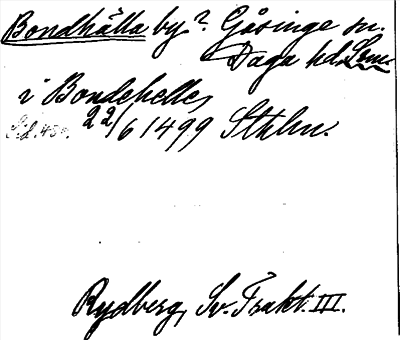 Bondhälla by? Gåsinge sn.
Daga hd. Söm.
i Bondehelle,
22/6 1499 Sthlm.
Rydberg, Sv. Trakt. III.